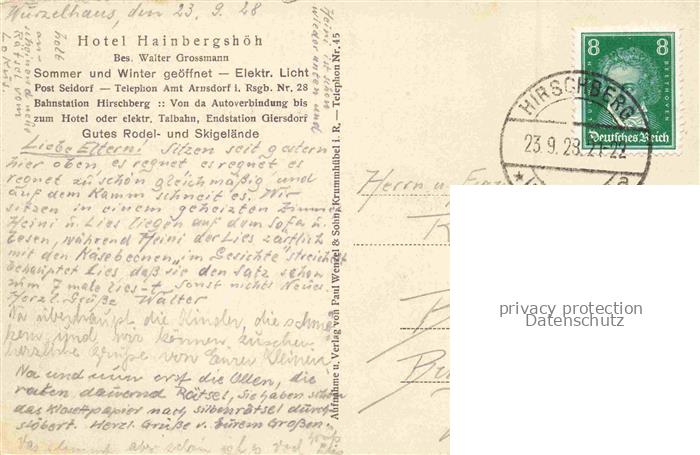 Wurzelhaus, den 23. 9. 28
Hotel Hainbergshöh
Bes. Walter Grossmann
Sommer und Winter geöffnet — Elektr. Licht
Post Seidorf — Telephon Amt Arnsdorf i. Rsgb. Nr. 28
Bahnstation Hirschberg :: Von da Autoverbindung bis
zum Hotel oder elektr. Talbahn, Endstation Giersdorf
Gutes Rodel- und Skigelände
Liebe Eltern! Sitzen seit gestern
hier oben es regnet es regnet es
regnet zu schön gleichmäßig und
auf dem Kamm schneit es. Wir
sitzen in einem geheizten Zimmer
Heini u. Lies liegen auf dem Sofa u.
lesen, während Heini der Lies zärtlich
mit den Käsebeenen „im Gesichte" streichelt
behauptet Lies daß sie den Satz schon
zum 7 male liest. Sonst nichts Neues
Herzl. Grüße Walter
Na überhaupt die Kinder, die
und wir können
herzliche Grüße von Euren Kleinen
Na und nun erst die Ollen, die
raten dauernd Rätsel, sie haben schon
das Klosettpapier nach Silbenrätsel durch-
stöbert. Herzl. Grüße v. Eurem Großen
Das stimmt aber schön ist es
Heini ist schon
wieder unten und
holt
Rätsel vom
Lokus.
Aufnahme u. Verlag von Paul Wenzel & Sohn, Krummhübel i. R., — Telephon Nr. 45
8 8
BEETHOVEN
Deutsches Reich
HIRSCHBERG
23.9.28. 21-22
Herrn u.
privacy protection
Datenschutz